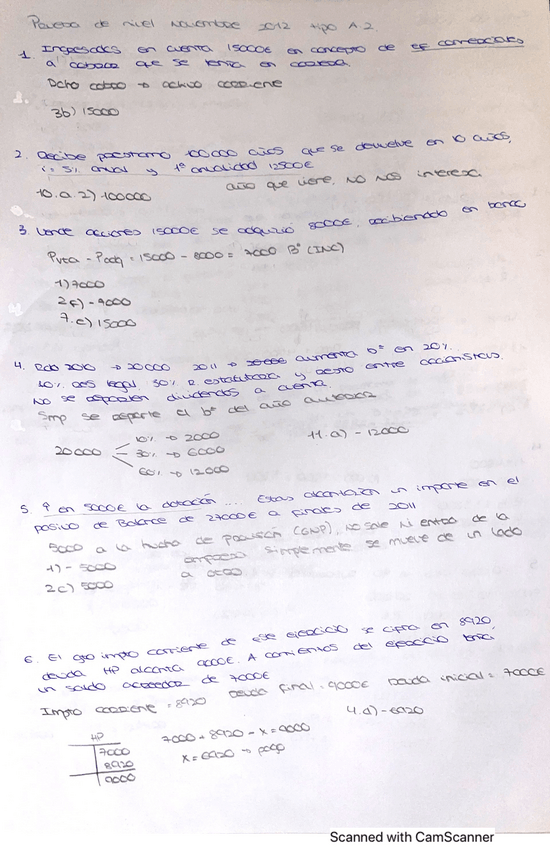 Prueba de nivel Noviembre 2012 tipo A.2
1. Ingresados en cuenta 15000€ en concepto de ef comerciales
a cobrar que se tenía en cartera.
Dcho cobro → activo corriente
3b) 15000
2. Recibe préstamo 100000 euros que se devuelve en 10 años,
i: 5% anual y 1ª anualidad 12500€
año que viene, NO NOS interesa
10.a.2) 100000
3. Vende acciones 15000€ se adquirió 8000€, recibiendo en banco
Pvta - Padq = 15000 - 8000 = 7000 Bº (INC)
1) 7000
2c) - 7000
7.c) 15000
4. Rdo 2010 → 20000 2011 → aumenta bº en 20%.
10% res legal 30% R estatutaria y resto entre accionistas.
No se reparten dividendos a cuenta.
Smp se reparte el bº del año anterior
20000
10% → 2000
30% → 6000
60% → 12000
11.a) - 12000
5. ↑ en 5000€ la dotación .... Estas alcanzan un importe en el
pasivo de Balance de 27000€ a finales de 2011
5000 a la hucha de provisión (GNP), no sale ni entra de la
empresa simplemente se mueve de un lado
a otro
1) - 5000
2c) 5000
6. El gto impto corriente de ese ejercicio se cifra en 8920,
deuda HP alcanza 9000€. A comienzos del ejercicio tenía
un saldo acreedor de 7000€
Impto corriente = 8920 Deuda final = 9000€ Deuda inicial = 7000€
4.d) - 6920
HP
7000
8920
9000
7000 + 8920 - x = 9000
x = 6920 → pago
Scanned with CamScanner